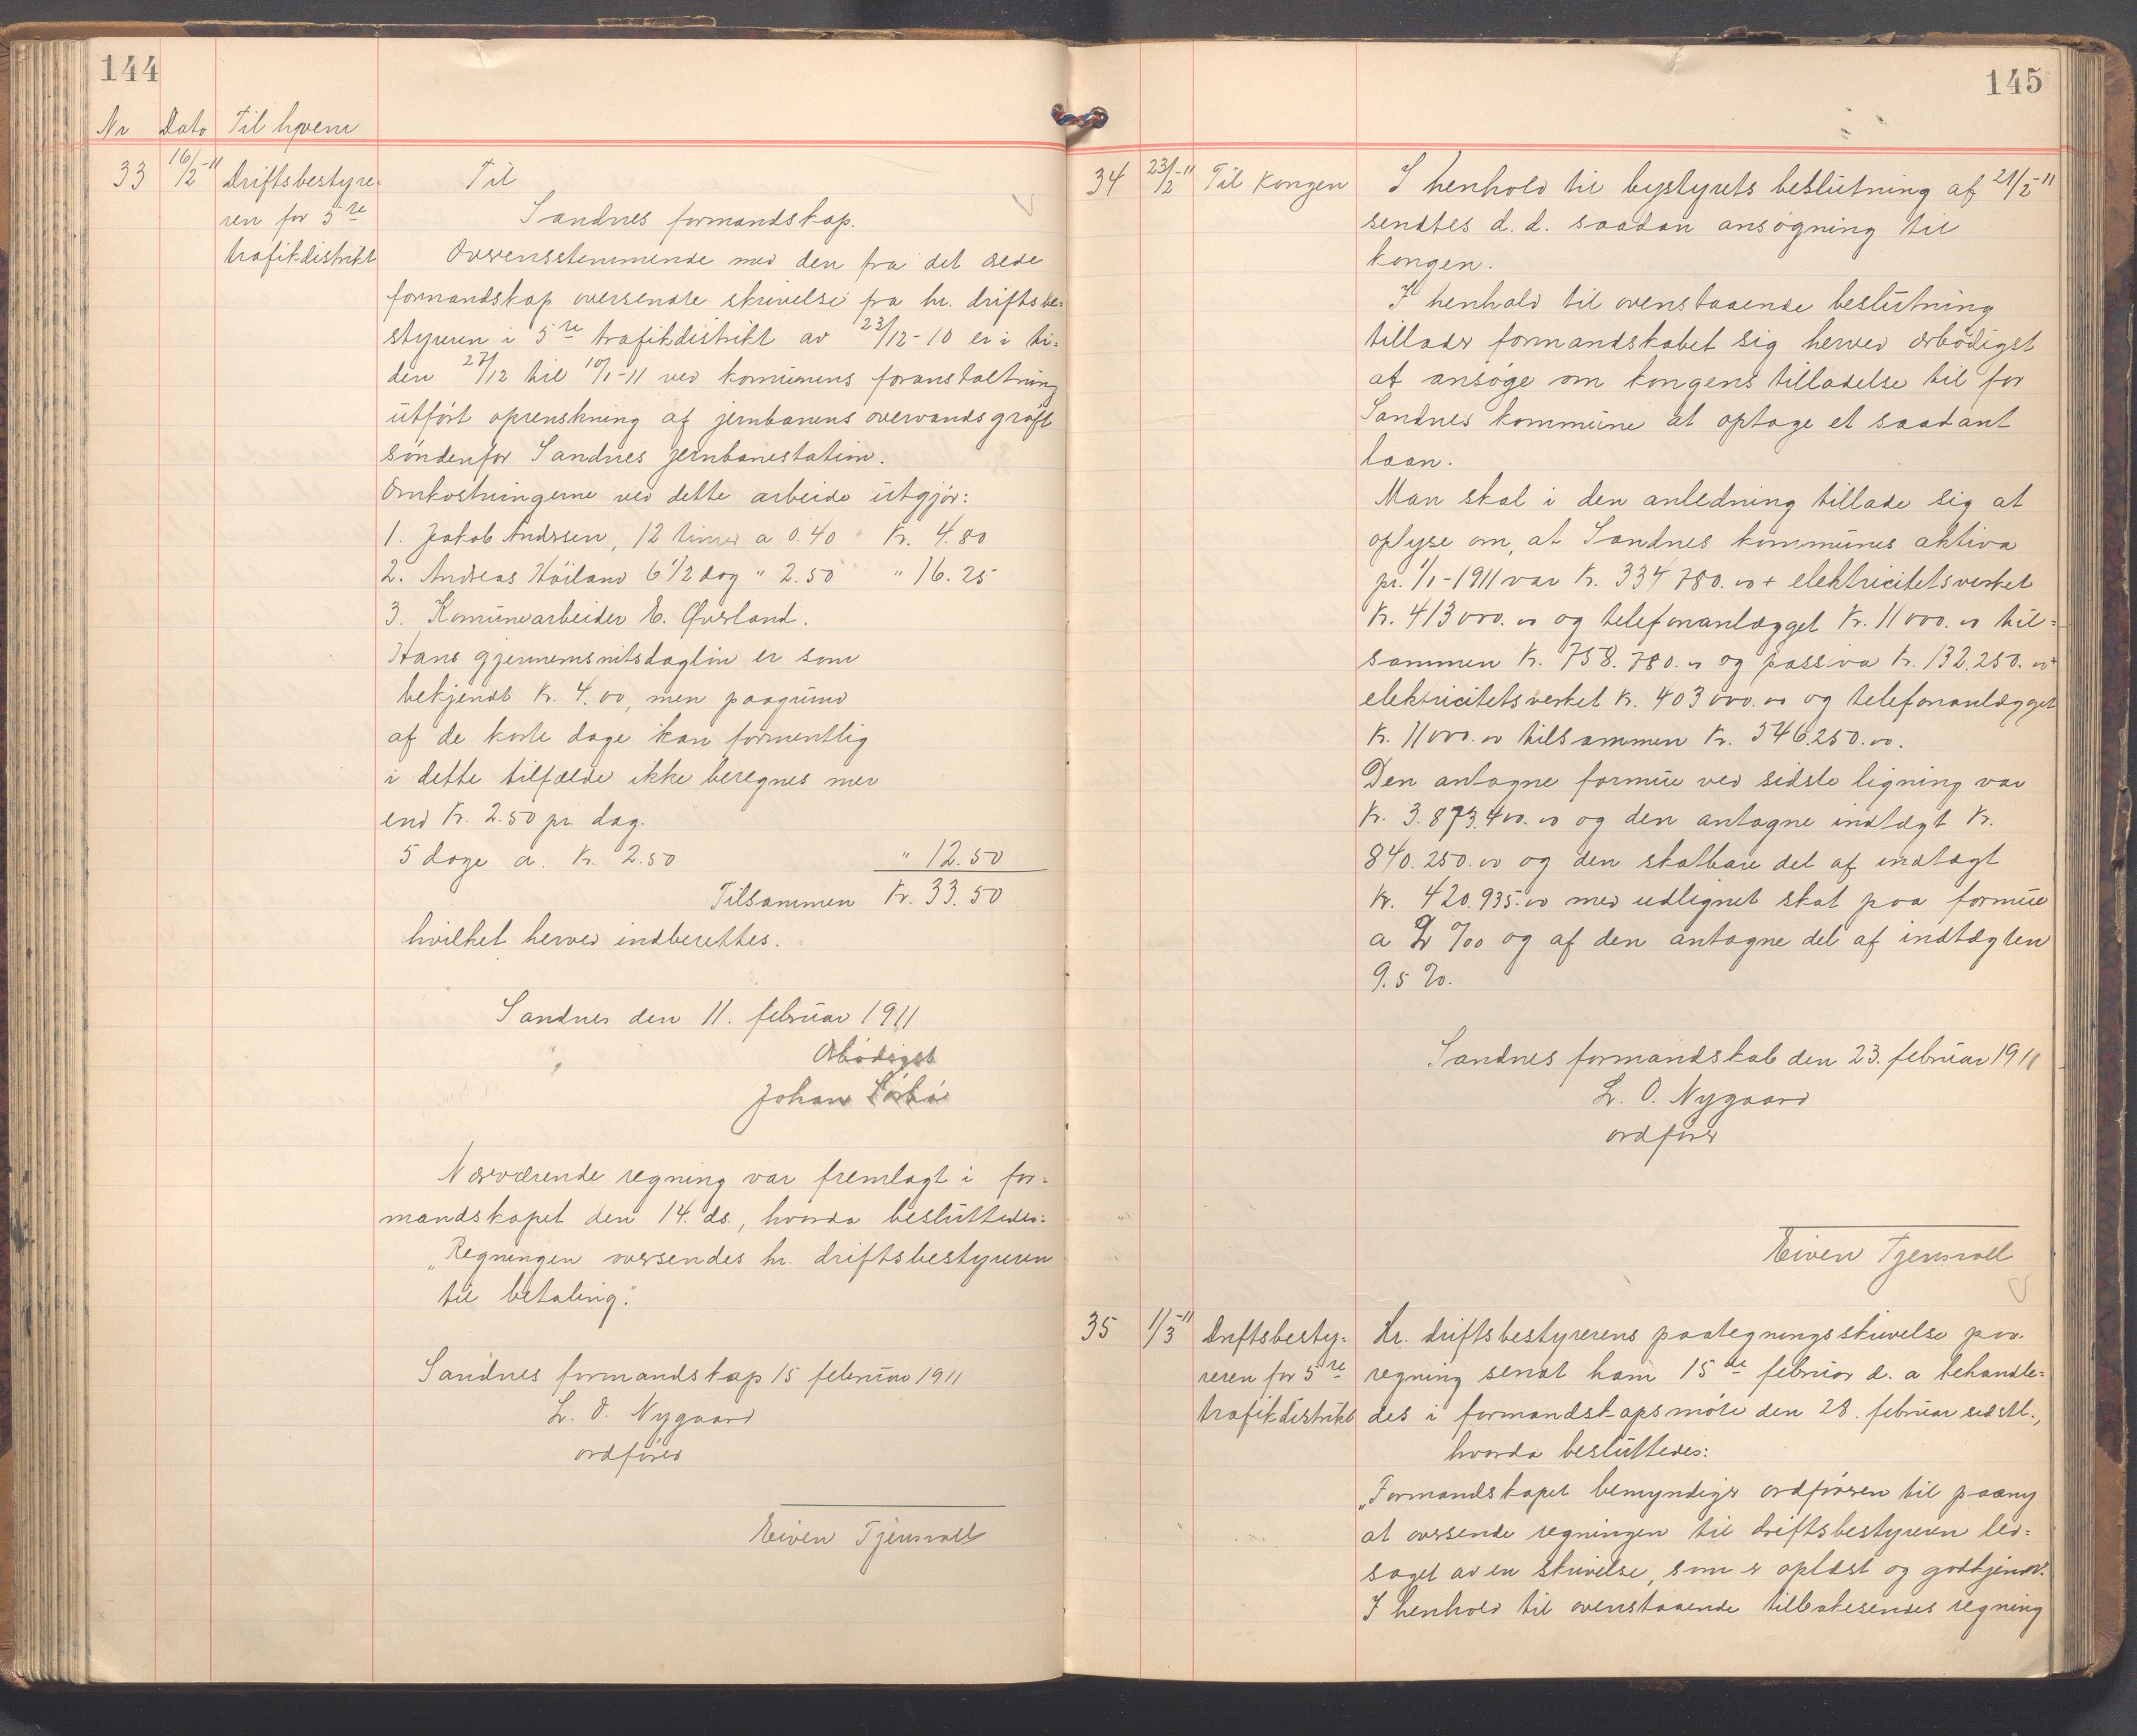 144
Nr Dato Til hvem
33 16/2-11 Driftsbestyre-
ren for 5te
trafikdistrikt
Til
Sandnes formandskap.
Overensstemmende med den fra det ærede
formandskap oversendte skrivelse fra hr. driftsbe-
styreren i 5te trafikdistrikt av 23/12-10 er i ti-
den 27/12 til 10/1-11 ved komunens foranstaltning
utført oprenskning af jernbanens overvandsgrøft
søndenfor Sandnes jernbanestation.
Omkostningerne ved dette arbeide utgjør:
1. Jakob Andrsen, 12 timer a 0.40 Kr. 4.80
2. Andreas Høiland 6 1/2 dag " 2.50 " 16.25
3. Komunearbeider E. Øverland.
Hans gjennemsnitsdagløn er som
bekjendt Kr. 4.00, men paagrund
af de korte dage kan formentlig
i dette tilfælde ikke beregnes mer
end Kr. 2.50 pr. dag.
5 dage a. Kr. 2.50 " 12.50
Tilsammen Kr. 33.50
hvilket herved indberettes.
Sandnes den 11. februar 1911
Ærbødigst
Johan Sørbø
Nærværende regning var fremlagt i for-
mandskapet den 14. ds., hvorda besluttedes:
„Regningen oversendes hr. driftsbestyreren
til betaling."
Sandnes formandskap 15 februar 1911
L. O. Nygaard
ordfører
Eiven Tjensvoll
145
34 23/2-11 Til Kongen
I henhold til bystyrets beslutning af 21/2-11
sendtes d. d. saadan ansøgning til
kongen.
I henhold til ovenstaaende beslutning
tillader formandskabet sig herved ærbødigst
at ansøge om kongens tilladelse til for
Sandnes kommune at optage et saadant
laan.
Man skal i den anledning tillade sig at
oplyse om, at Sandnes kommunes aktiva
pr. 1/1-1911 var Kr. 334 780.00 + elektricitetsverket
Kr. 413 000.00 og telefonanlægget Kr. 11 000.00 til-
sammen Kr. 758.780.00 og passiva Kr. 132.250.00 +
elektricitetsverket Kr. 403 000.00 og telefonanlægget
Kr. 11 000.00 tilsammen Kr. 546.250.00.
Den antagne formue ved sidste ligning var
Kr. 3.873.400.00 og den antagne indtægt Kr.
840.250.00 og den skatbare del af indtægt
Kr. 420.935.00 med udlignet skat paa formue
a 2 ‰ og af den antagne del af indtægten
9.5 %.
Sandnes formandskab den 23. februar 1911
L. O. Nygaard
ordfører
Eiven Tjensvoll
35 1/3-11 Driftsbesty-
reren for 5te
trafikdistrikt
Hr. driftsbestyrerens paategningsskrivelse paa
regning sendt ham 15de februar d. a behandle-
des i formandskapsmøte den 28. februar sidstl.,
hvorda besluttedes:
„Formandskapet bemyndiger ordføreren til paany
at oversende regningen til driftsbestyreren led-
saget av en skrivelse, som er oplæst og godkjendt."
I henhold til ovenstaaende tilbakesendes regning